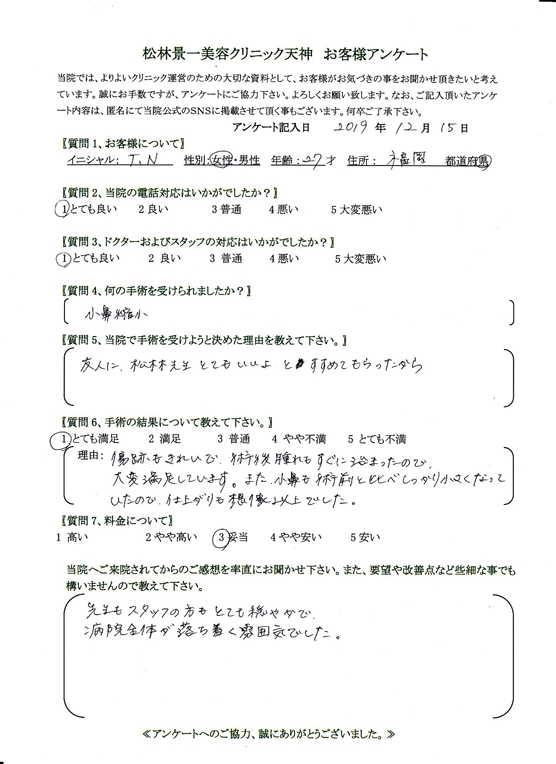 松林景一美容クリニック天神 お客様アンケート
当院では、よりよいクリニック運営のための大切な資料として、お客様がお気づきの事をお聞かせ頂きたいと考え
ています。誠にお手数ですが、アンケートにご協力下さい。よろしくお願い致します。なお、ご記入頂いたアンケ
ート内容は、匿名にて当院公式のSNSに掲載させて頂く事もございます。何卒ご了承下さい。
アンケート記入日 2019 年 12 月 15 日
〖質問 1、お客様について〗
イニシャル: T.N 性別:女性・男性 年齢:27才 住所: 福岡 都道府県
〖質問 2、当院の電話対応はいかがでしたか?〗
1 とても良い 2 良い 3 普通 4 悪い 5 大変悪い
〖質問 3、ドクターおよびスタッフの対応はいかがでしたか?〗
1 とても良い 2 良い 3 普通 4 悪い 5 大変悪い
〖質問 4、何の手術を受けられましたか?〗
小鼻縮小
〖質問 5、当院で手術を受けようと決めた理由を教えて下さい。〗
友人に、松林先生とてもいいよ とすすめてもらったから
〖質問 6、手術の結果について教えて下さい。〗
1 とても満足 2 満足 3 普通 4 やや不満 5 とても不満
理由: 傷跡もきれいで、術後腫れもすぐに治まったので、
大変満足しています。また、小鼻も術前と比べしっかり小さくなって
いたので、仕上がりも想像以上でした。
〖質問 7、料金について〗
1 高い 2 やや高い 3 妥当 4 やや安い 5 安い
当院へご来院されてからのご感想を率直にお聞かせ下さい。また、要望や改善点など些細な事でも
構いませんので教えて下さい。
先生もスタッフの方もとても穏やかで、
病院全体が落ち着く雰囲気でした。
≪アンケートへのご協力、誠にありがとうございました。≫